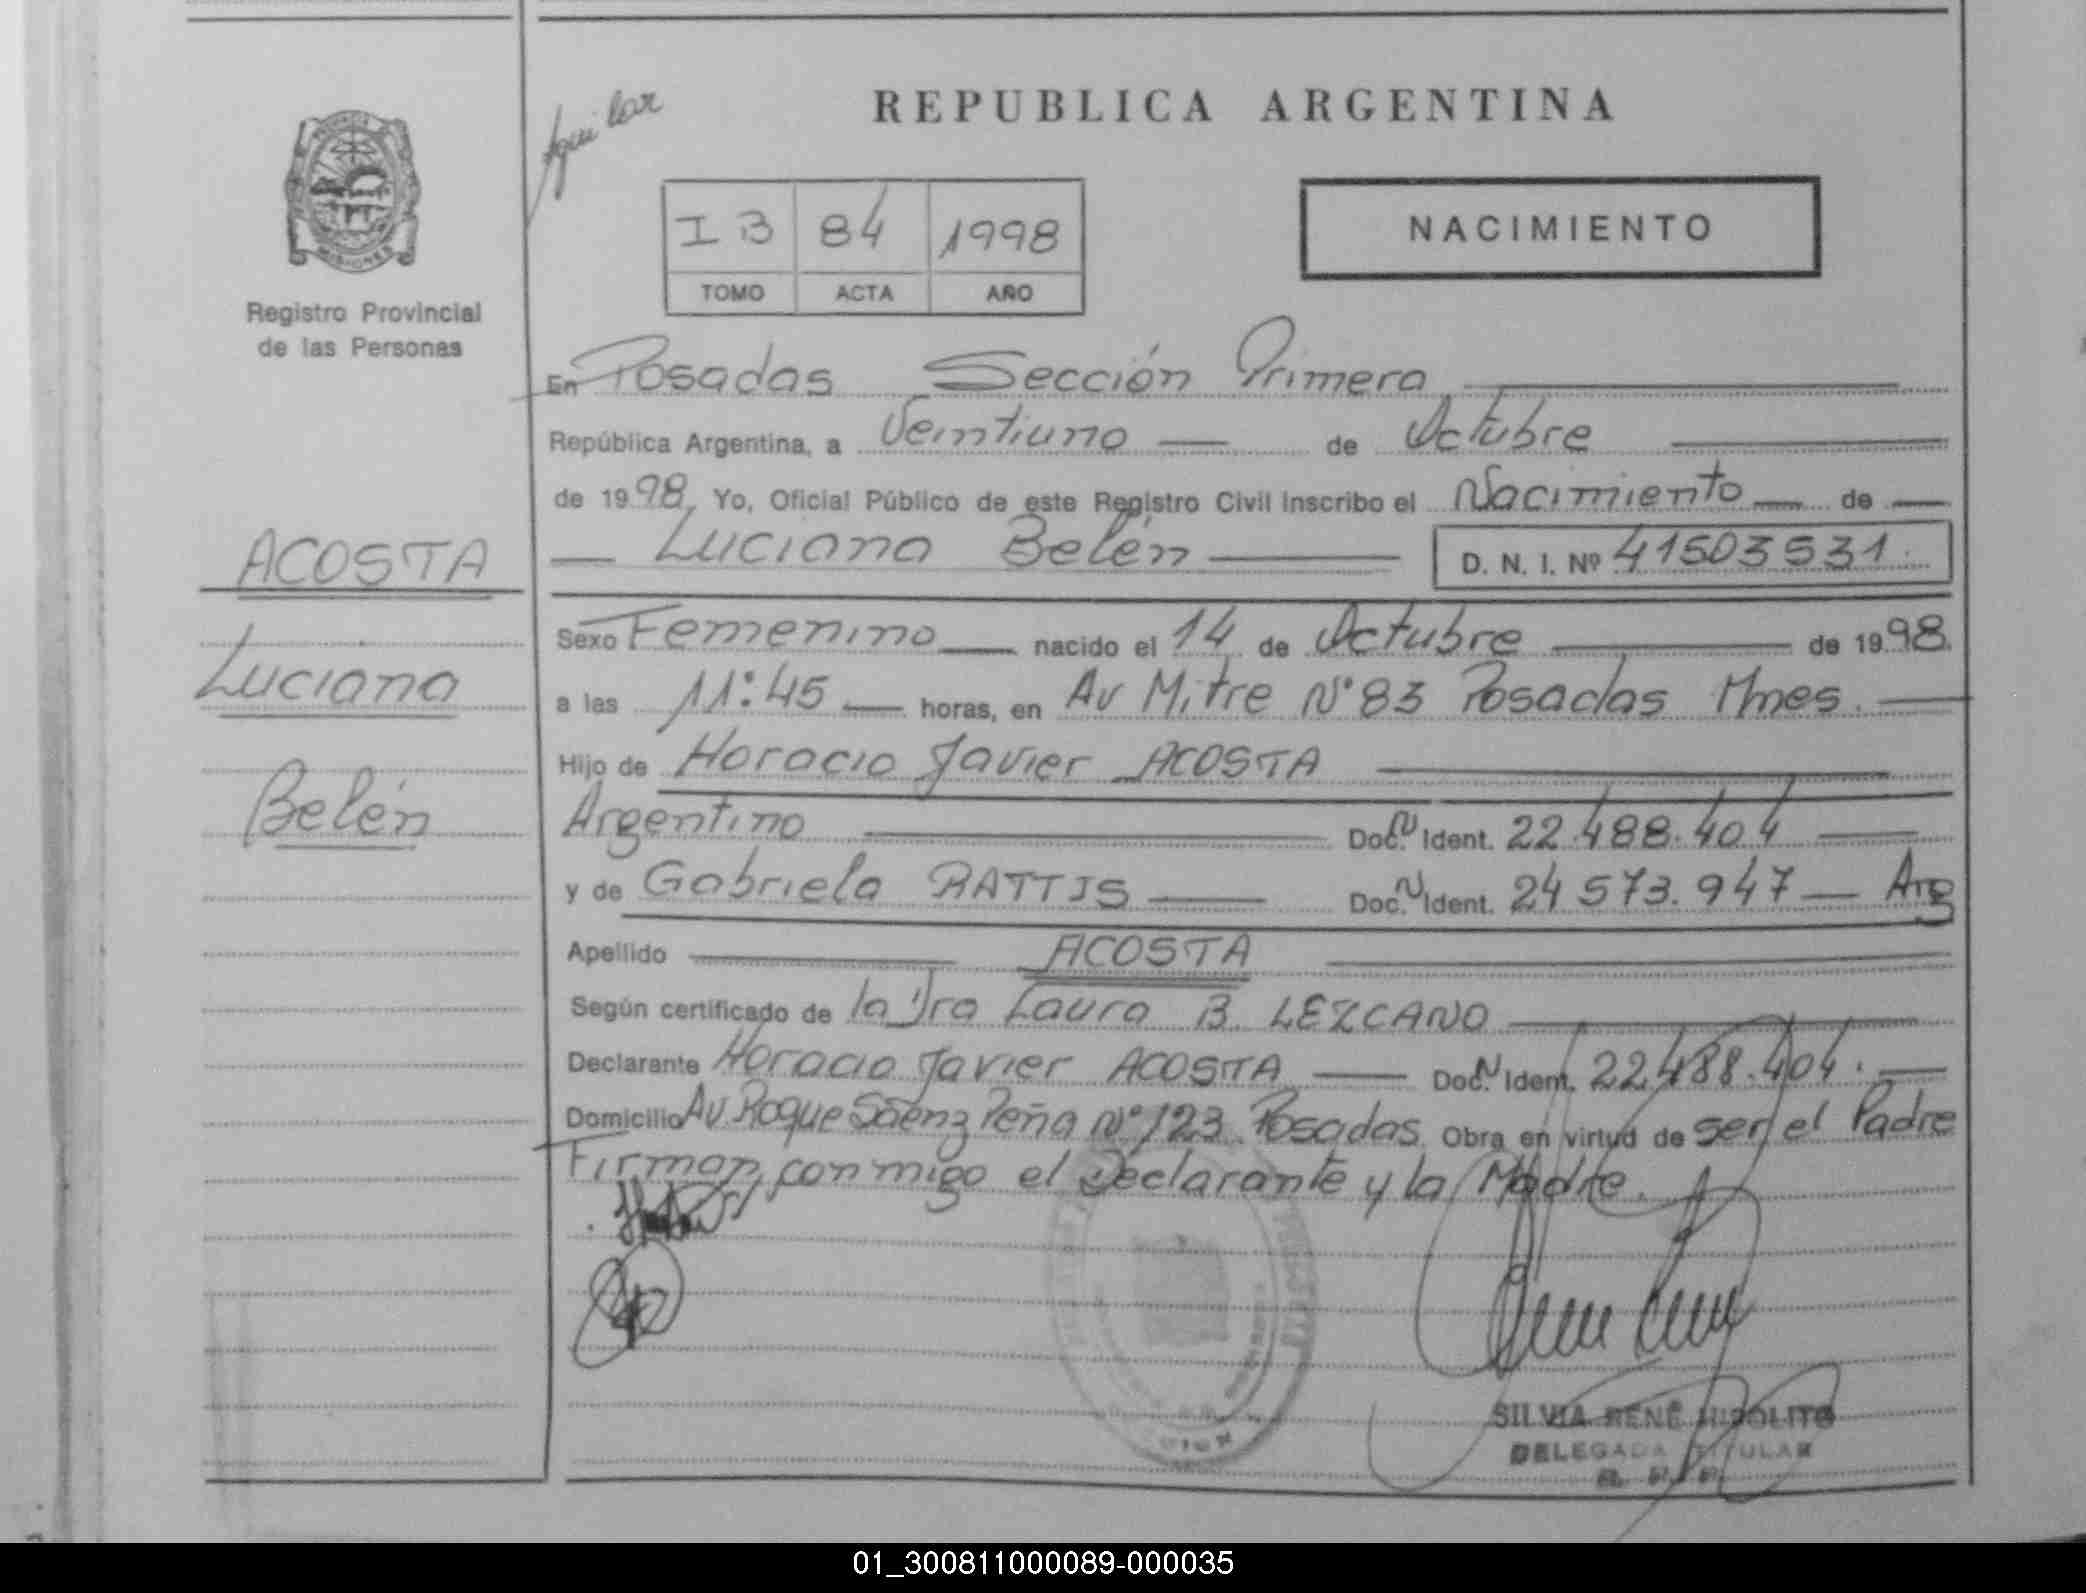 Aguilar
REPUBLICA ARGENTINA
I B 84 1998
TOMO ACTA AÑO
NACIMIENTO
PROVINCIA
MISIONES
Registro Provincial
de las Personas
ACOSTA
Luciana
Belén
En Posadas Sección Primera
República Argentina, a Veintiuno de Octubre
de 1998, Yo, Oficial Público de este Registro Civil inscribo el Nacimiento de
Luciana Belén D. N. I. Nº 41503531.
Sexo Femenino nacido el 14 de Octubre de 1998.
a las 11:45 horas, en Av Mitre N° 83 Posadas Mnes.
Hijo de Horacio Javier ACOSTA
Argentino Doc. N Ident. 22.488.404
y de Gabriela RATTIS Doc. N Ident. 24573.947 Arg
Apellido ACOSTA
Según certificado de la Dra Laura B. LEZCANO
Declarante Horacio Javier ACOSTA Doc. N Ident. 22.488.404.
Domicilio Av. Roque Sáenz Peña N° 123 Posadas Obra en virtud de ser el Padre
Firman conmigo el Declarante y la Madre.
SILVIA RENÉ HIPOLITO
DELEGADA TITULAR
R. P. P.
01_300811000089-000035